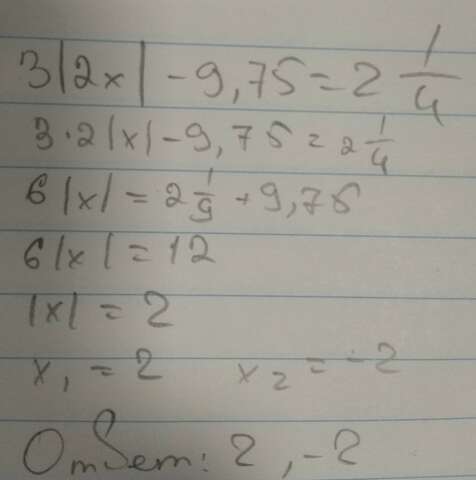 3|2x| - 9,75 = 2 1/4
3·2|x| - 9,75 = 2 1/4
6|x| = 2 1/9 + 9,75
6|x| = 12
|x| = 2
x₁ = 2 x₂ = -2
Ответ: 2, -2